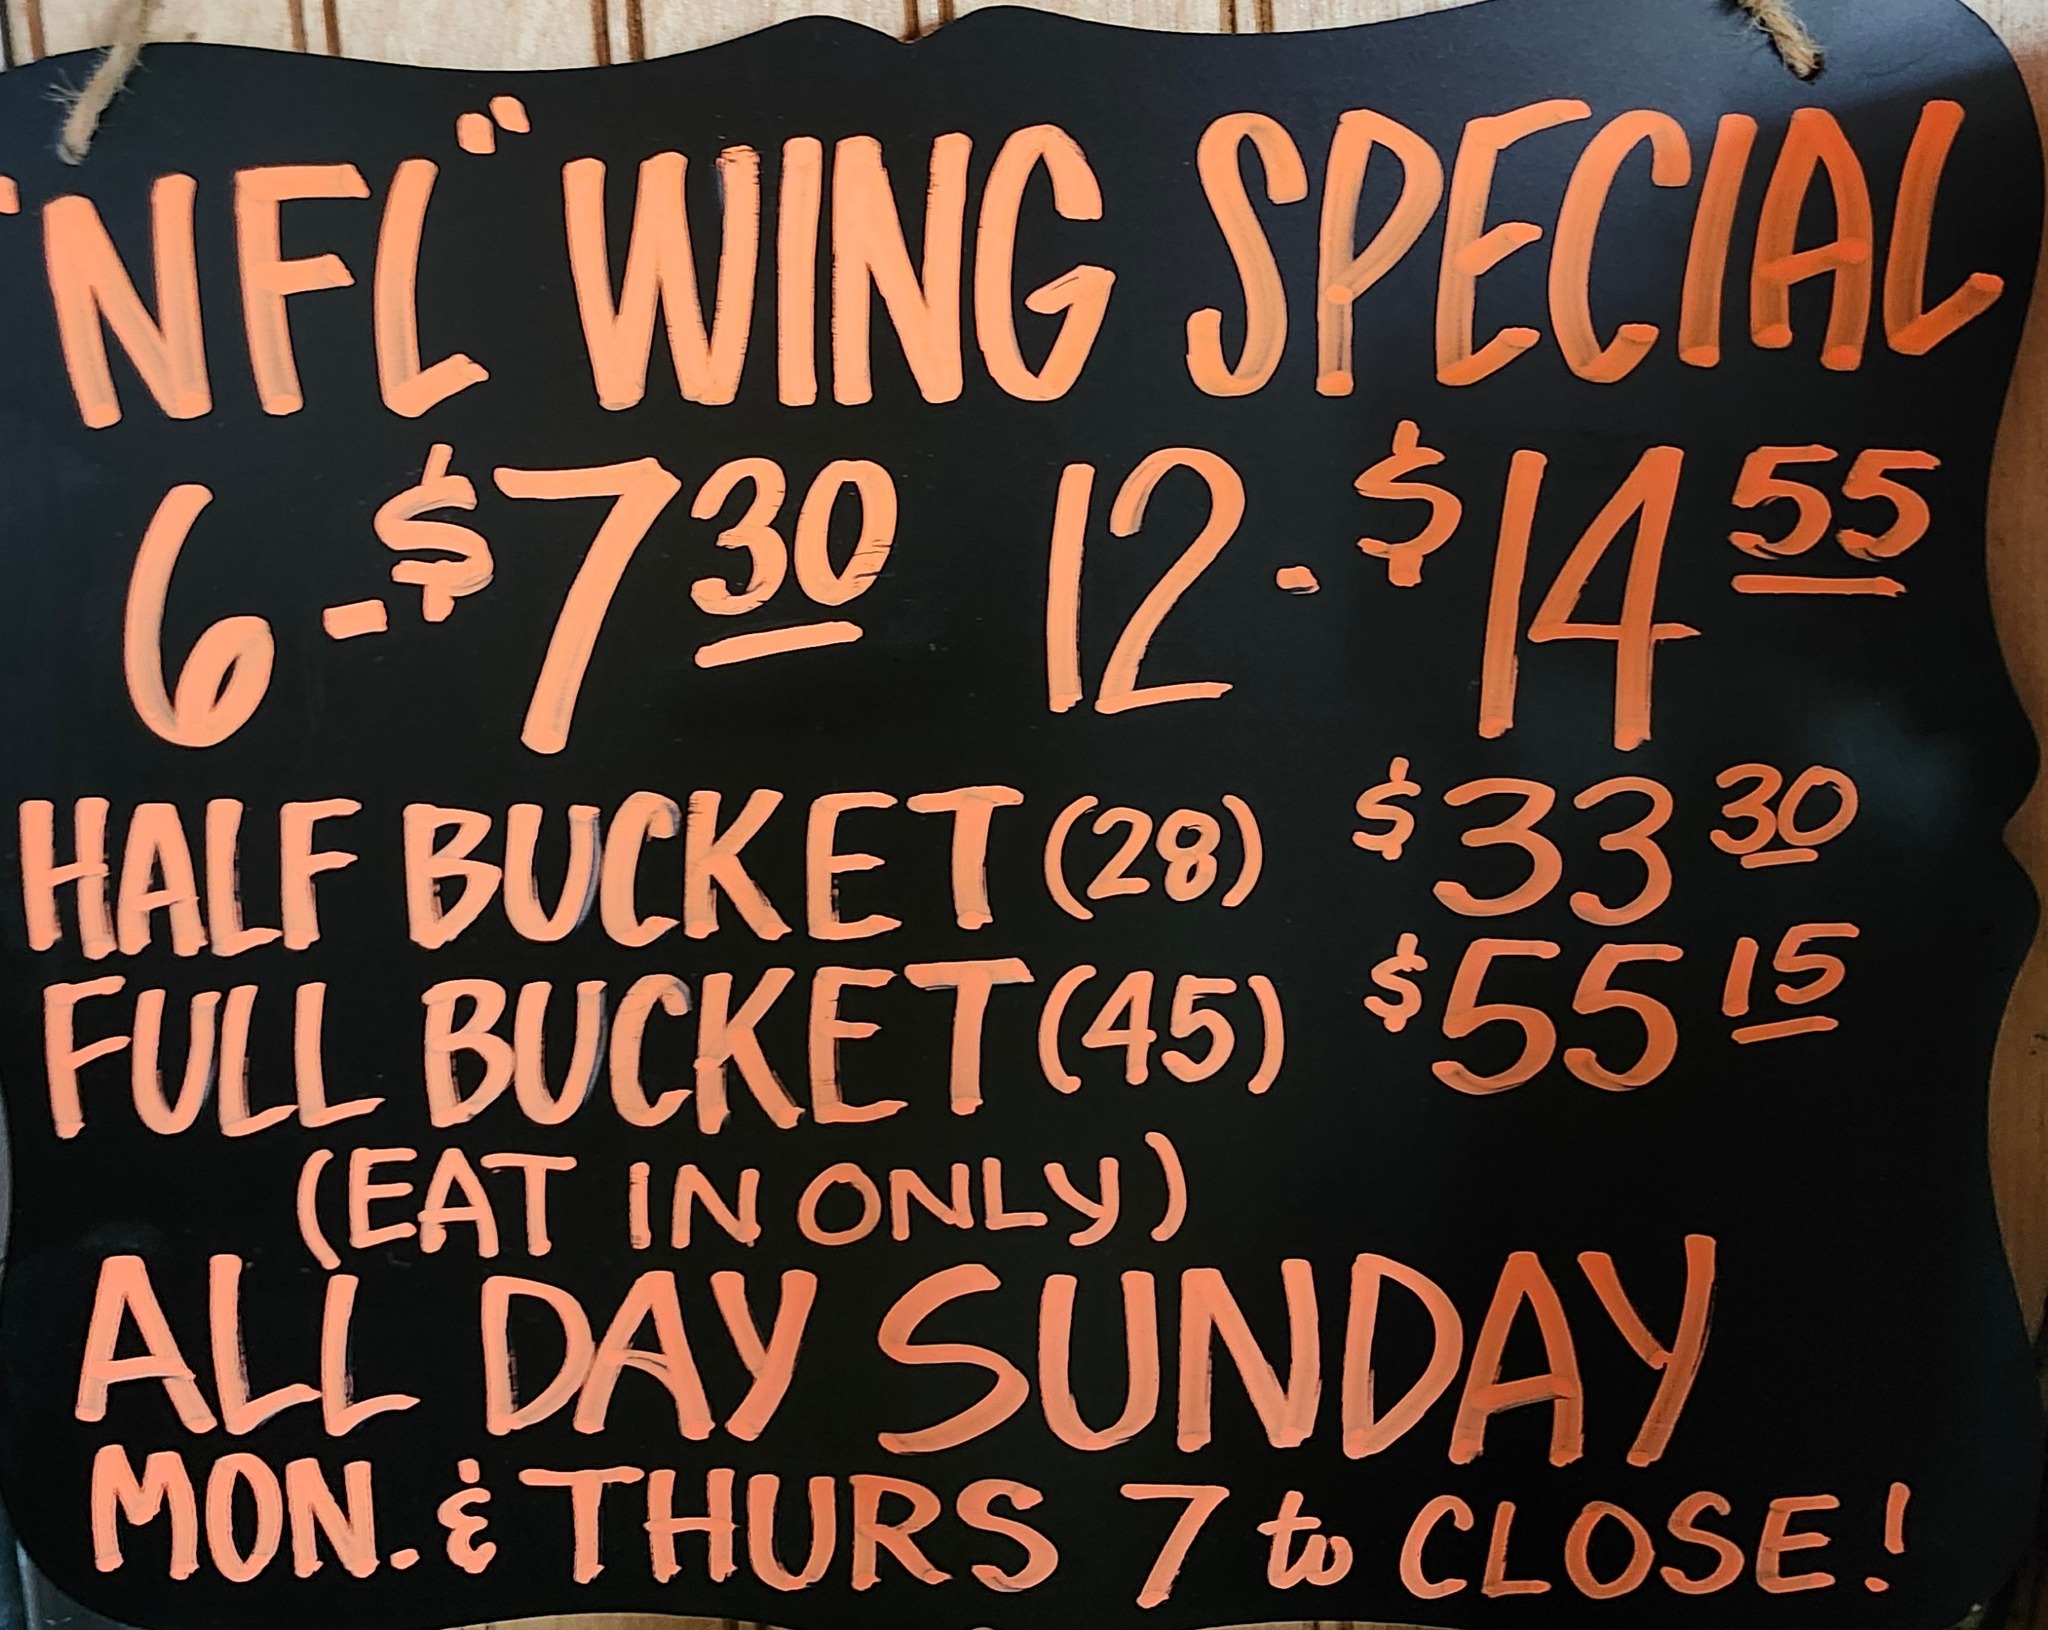 "NFL" WING SPECIAL
6-$7.30 12-$14.55
HALF BUCKET (28) $33.30
FULL BUCKET (45) $55.15
(EAT IN ONLY)
ALL DAY SUNDAY
MON. & THURS 7 to CLOSE!